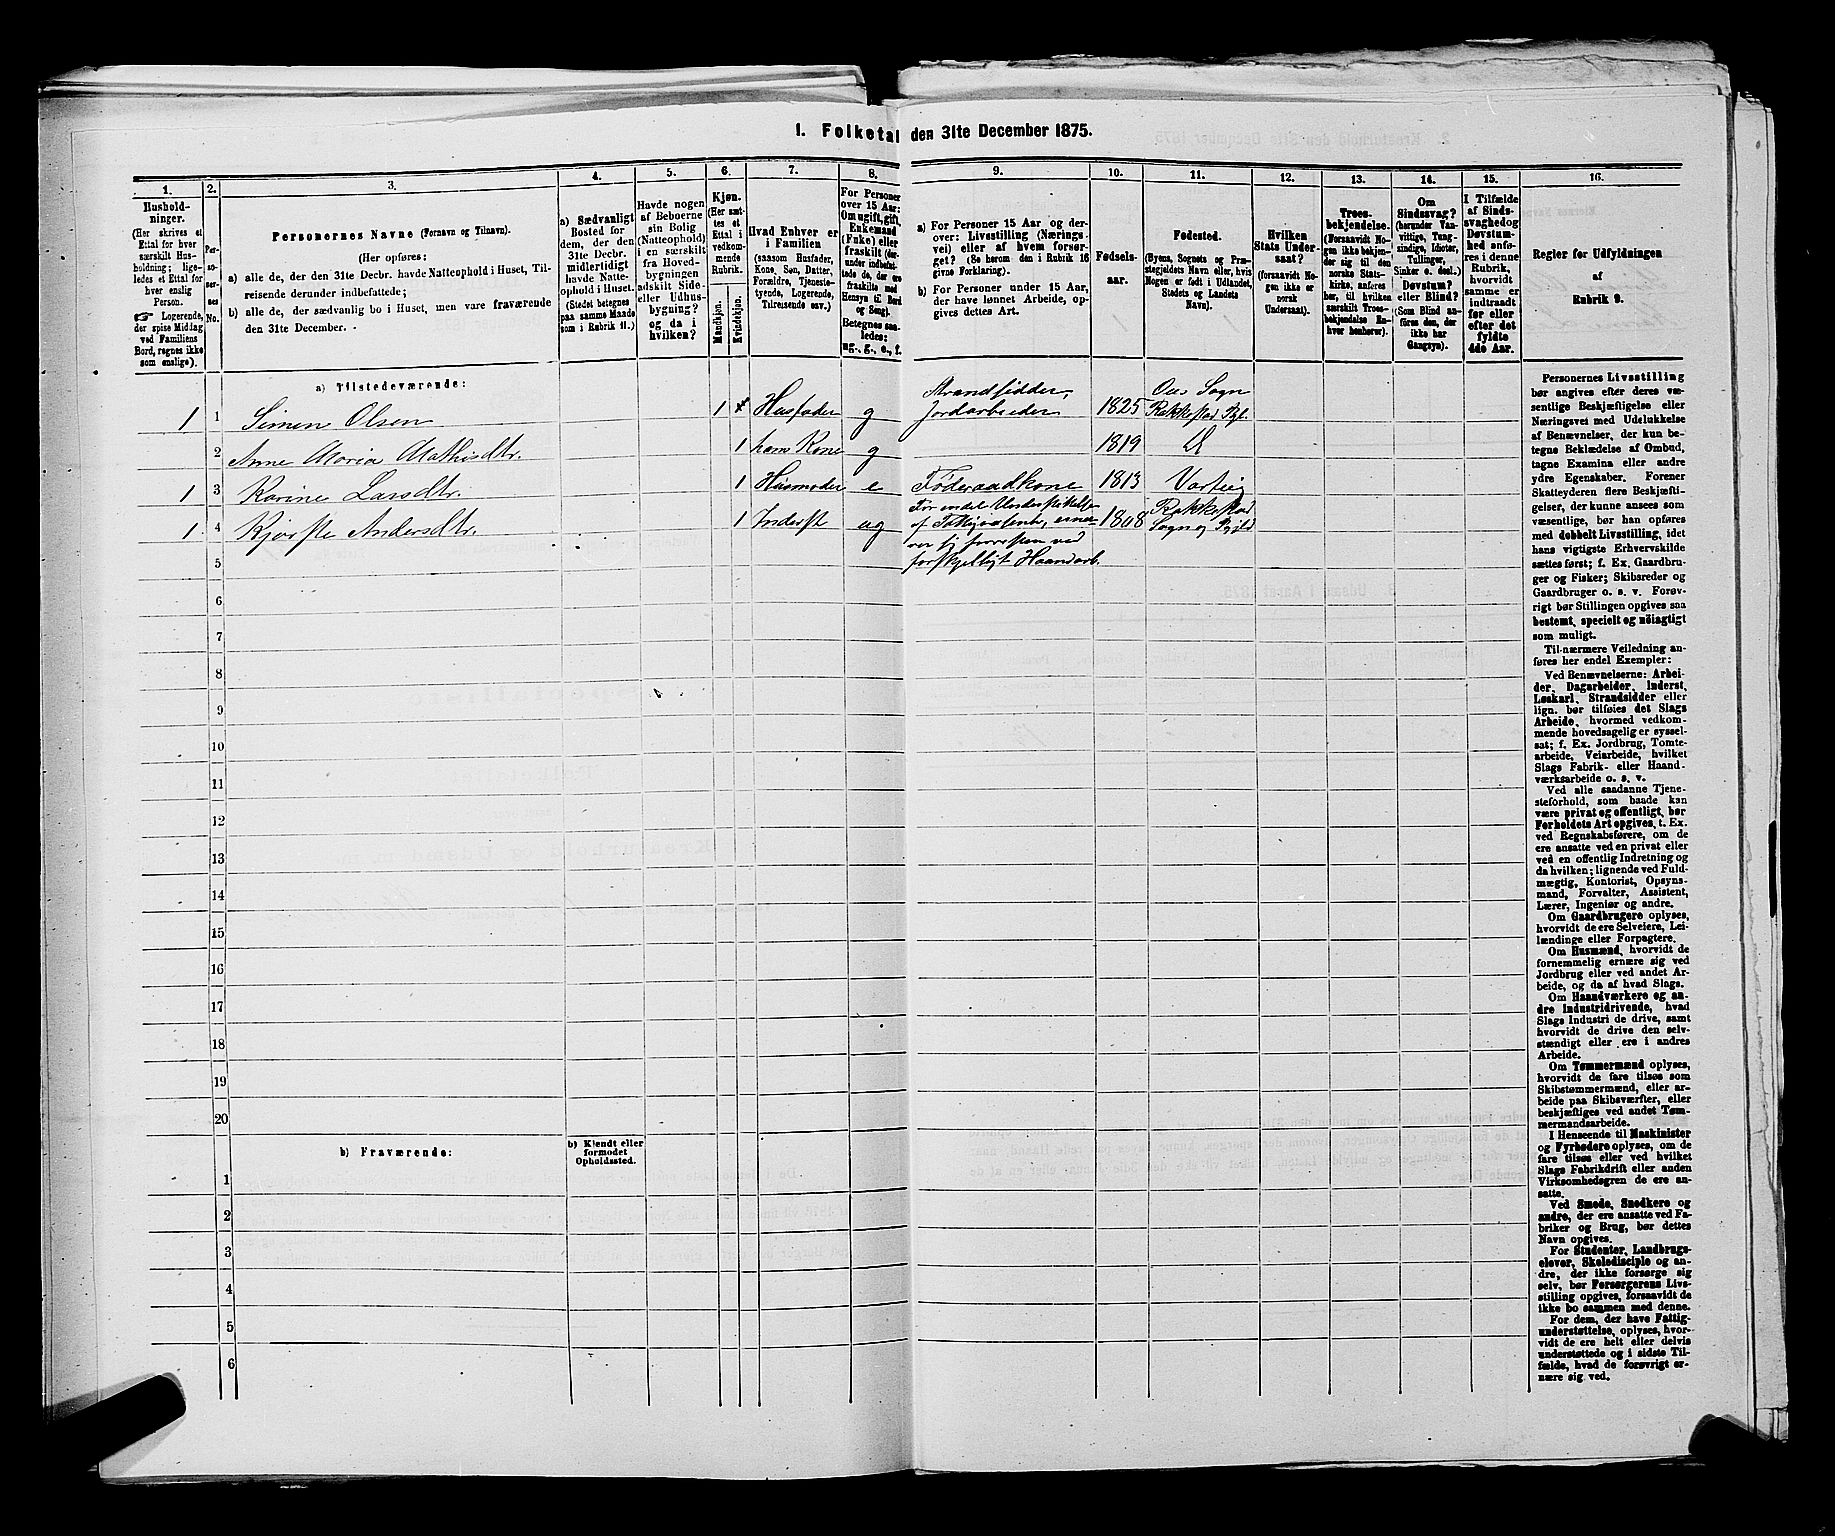 1. Folketal den 31te December 1875.
1.
2.
3.
4.
5.
6.
7.
8.
9.
10.
11.
12.
13.
14.
15.
16.
Hushold-
ninger.
(Her skrives et
Ettal for hver
særskilt Hus-
holdning; lige-
ledes et Ettal for
hver enslig
Person.
☞ Logerende,
der spise Middag
ved Familiens
Bord, regnes ikke
som enslige).
Per-
so-
ner-
nes
No.
Personernes Navne (Fornavn og Tilnavn).
(Her opføres:
a) alle de, der den 31te Decbr. havde Natteophold i Huset, Til-
reisende derunder indbefattede;
b) alle de, der sædvanlig bo i Huset, men vare fraværende
den 31te December.
a) Sædvanligt
Bosted for
dem, der den
31te Decbr.
midlertidigt
havde Natte-
ophold i Huset.
(Stedet betegnes
paa samme Maade
som i Rubrik 11.)
Havde nogen
af Beboerne
sin Bolig
(Natteophold)
i en særskilt
fra Hoved-
bygningen
adskilt Side-
eller Udhus-
bygning?
og da i
hvilken?
Kjøn.
(Her sæt-
tes et
Ettal i
vedkom-
mende
Rubrik.
Mandkjøn.
Kvindekjøn.
Hvad Enhver er
i Familien
(saasom Husfader,
Kone, Søn, Datter,
Forældre, Tjeneste-
tyende, Logerende,
Tilreisende osv.)
For Personer
over 15 Aar:
Om ugift, gift,
Enkemand
(Enke) eller
fraskilt (der-
under indbefat-
tede de, der ere
fraskilte med
Hensyn til Bord
og Seng).
Betegnes saa-
ledes:
ug., g., e., f.
a) For Personer 15 Aar og der-
over: Livsstilling (Nærings-
vei) eller af hvem forsør-
get? (Se herom den i Rubrik 16
givne Forklaring).
b) For Personer under 15 Aar,
der have lønnet Arbeide, op-
gives dettes Art.
Fødsels-
aar.
Fødested.
(Byens, Sognets og Præ-
stegjeldets Navn eller, hvis
Nogen er født i Udlandet,
Stedets og Landets
Navn).
Hvilken
Stats Under-
saat?
(forsaavidt No-
gen ikke er
norsk
Undersaat).
Troes-
bekjendelse.
(Forsaavidt No-
gen ikke bekjen-
der sig til den
norske Stats-
kirke, anføres
her, til hvilken
særskilt Troes-
bekjendelse En-
hver henhører).
Om
Sindssvag?
(herunder Van-
vittige, Tung-
sindige, Idioter,
Tullinger,
Sinker o. desl.)
Døvstum?
eller Blind?
(Som Blind an-
føres den, der
ikke har
Gangsyn).
I Tilfælde
af Sinds-
svaghed og
Døvstum-
hed anfø-
res i denne
Rubrik,
hvorvidt
samme er
indtraadt
før eller
efter det
fyldte
4de Aar.
Regler for Udfyldningen
af
Rubrik 9.
a) Tilstedeværende:
1 1 Simen Olsen 1 Husfader g Strandsidder, Jordarbeider 1825 Oos Sogn Rakkestad Pgl.
2 Anne Maria Mathisdtr. 1 hans Kone g 1819
1 3 Karine Larsdtr. 1 Husmoder e Føderaadkone 1813 Varteig
1 4 Kjørste Andersdtr. 1 Inderst ug 1808 Rakkestad Sogn og Pgjld
forskjelligt Haandarb.
5
6
7
8
9
10
11
12
13
14
15
16
17
18
19
20
b) Fraværende:
b) Kjendt eller
formodet
Opholdssted.
1
2
3
4
5
6
Personernes Livsstilling
bør angives efter deres væ-
sentlige Beskjæftigelse eller
Næringsvei med Udelukkelse
af Benævnelser, der kun be-
tegne Beklædelse af Ombud,
tagne Examina eller andre
ydre Egenskaber. Forener
Skatteyderen flere Beskjæfti-
gelser, der kunne ansees som
væsentlige, bør han opføres
med dobbelt Livsstilling, idet
hans vigtigste Erhvervskilde
sættes først; f. Ex. Gaardbru-
ger og Fisker; Skibsreder og
Gaardbruger o. s. v. Forøv-
rigt bør Stillingen opgives saa
bestemt, specielt og nøiagtigt
som muligt.
Til nærmere Veiledning an-
føres her endel Exempler:
Ved Benævnelserne: Arbei-
der, Dagarbeider, Inderst,
Løskarl, Strandsidder eller
lign. bør tilføies det Slags
Arbeide, hvormed vedkom-
mende hovedsagelig er syssel-
sat; f. Ex. Jordbrug, Tomte-
arbeide, Veiarbeide, hvilket
Slags Fabrik- eller Haand-
værksarbeide o. s. v.
Ved alle saadanne Tjene-
steforhold, som baade kan
være privat og offentligt, bør
Forholdets Art opgives, t. Ex.
ved Regnskabsførere, om de
ere ansatte ved en privat eller
ved en offentlig Indretning og
da hvilken; lignende ved Fuld-
mægtig, Kontorist, Opsyns-
mand, Forvalter, Assistent,
Lærer, Ingeniør og andre.
Om Gaardbrugere oplyses,
hvorvidt de ere Selveiere, Lei-
lændinge eller Forpagtere.
Om Husmænd, hvorvidt de
fornemmelig ernære sig ved
Jordbrug eller ved andet Ar-
beide, og da af hvad Slags.
Om Haandværkere og an-
dre Industridrivende, hvad
Slags Industri de drive, samt
hvorvidt de drive den selv-
stændigt eller ere i andres
Arbeide.
Om Tømmermænd oplyses,
hvorvidt de fare tilsøs som
Skibstømmermænd, eller ar-
beide paa Skibsværfter, eller
beskjæftiges ved andet Tøm-
mermandsarbeide.
I Henseende til Maskinister
og Fyrbødere oplyses, om de
fare tilsøs eller ved hvilket
Slags Fabrikdrift eller anden
Virksomhedsgren de ere an-
satte.
Ved Smede, Snedkere og
andre, der ere ansatte ved Fa-
briker og Brug, bør dettes
Navn opgives.
For Studenter, Landbrugs-
elever, Skoledisciple og an-
dre, der ikke forsørge sig
selv, bør Forsørgerens Livs-
stilling opgives, forsaavidt de
ikke bo sammen med denne.
For dem, der have Fattig-
understøttelse, oplyses, hvor-
vidt de ere helt eller delvis
understøttede og i sidste Til-
fælde, hvad de forøvrigt er-
nære sig ved.